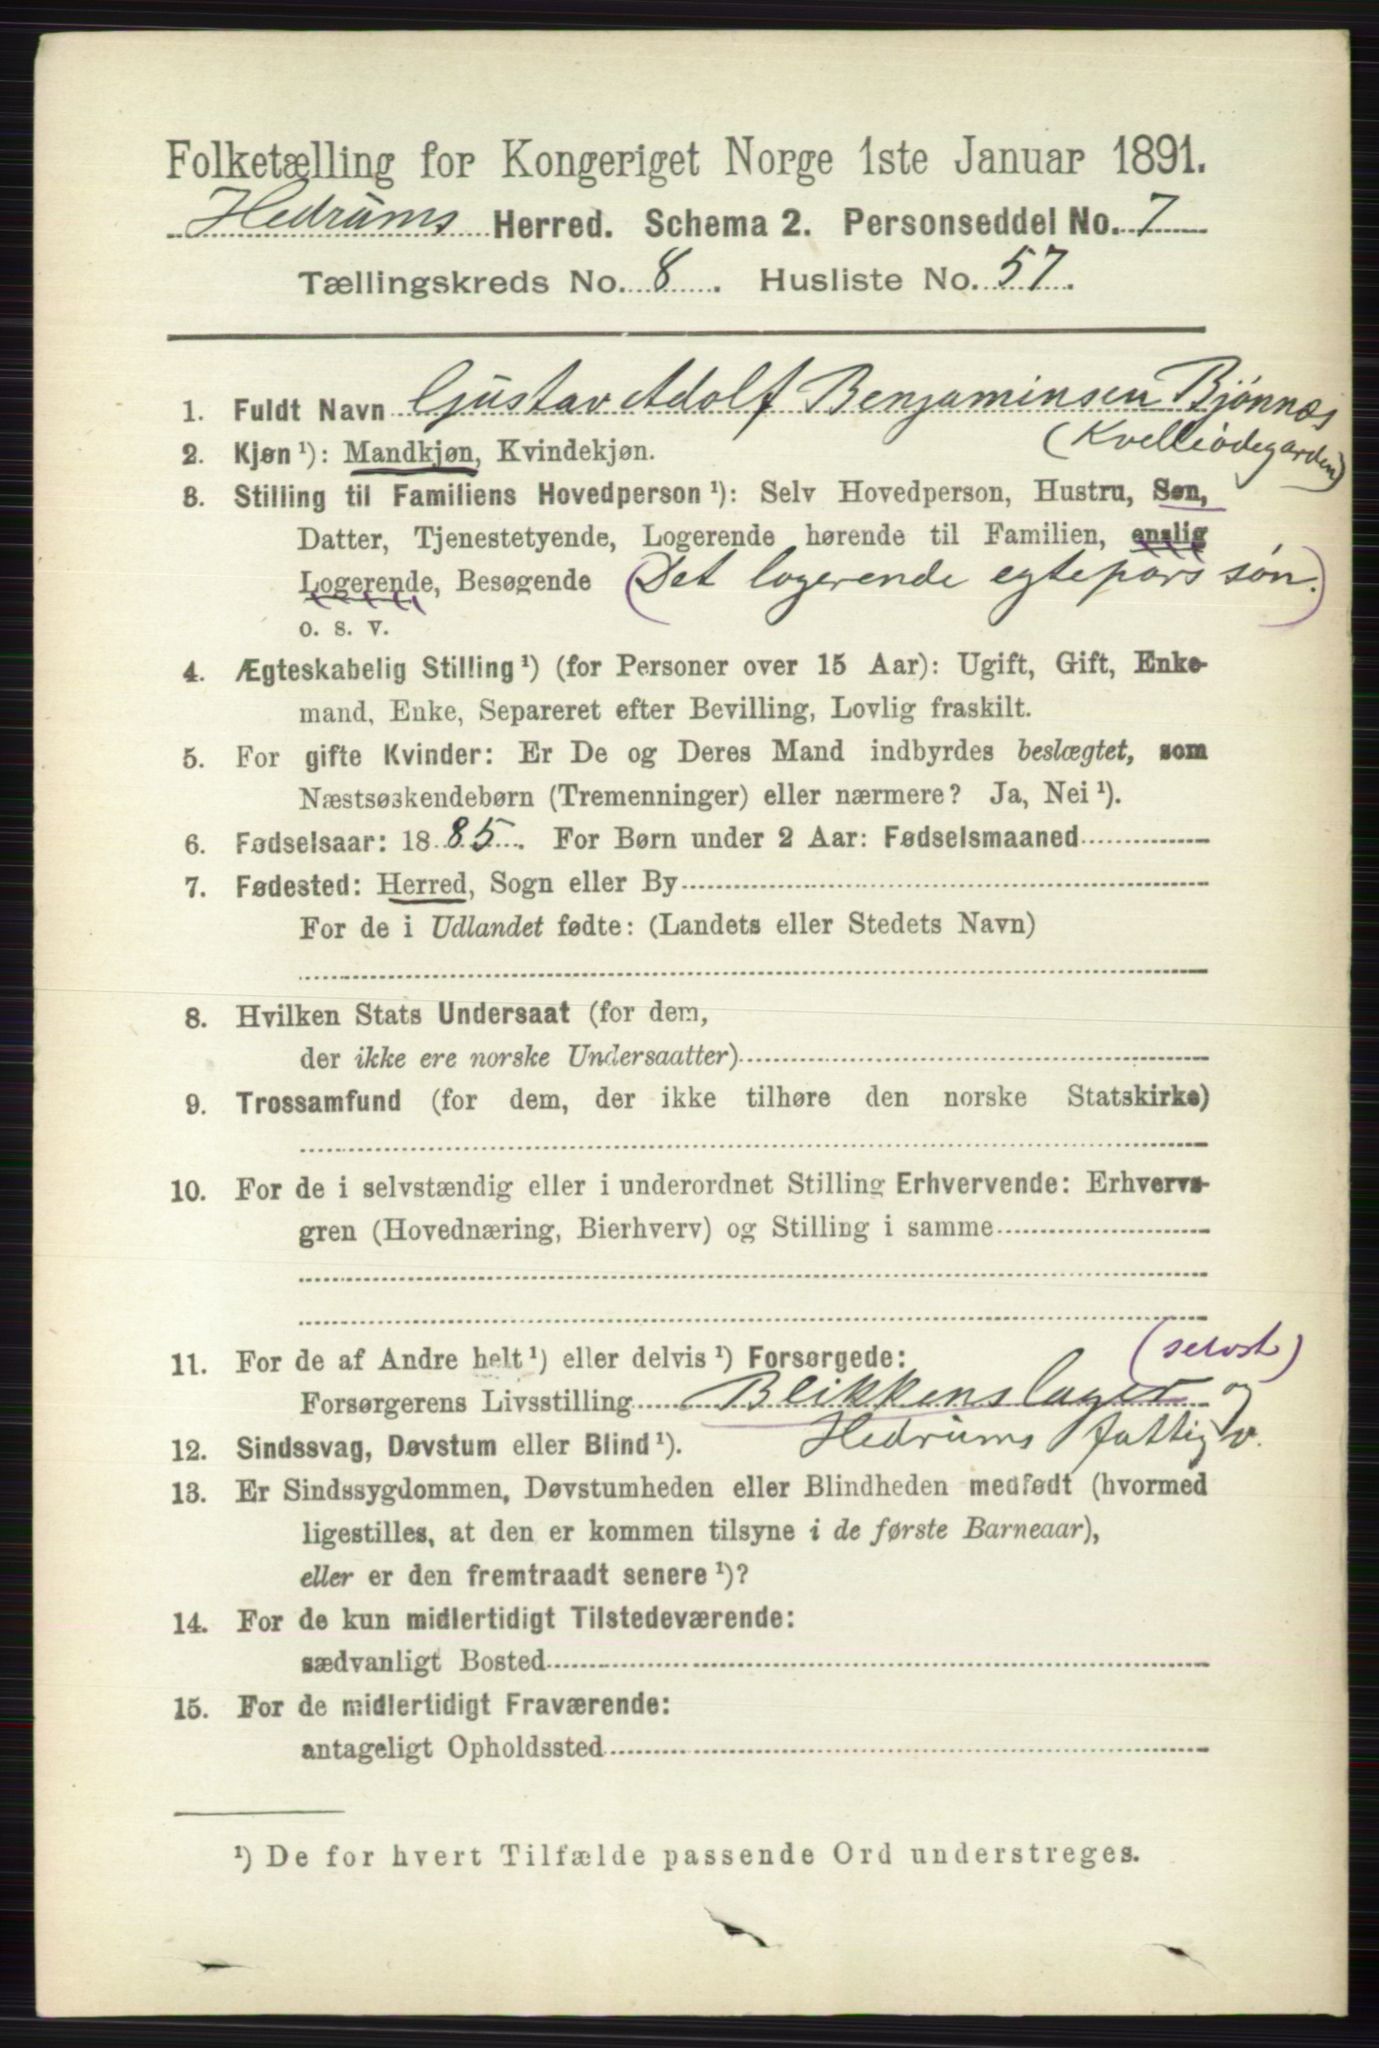 Folketælling for Kongeriget Norge 1ste Januar 1891.
Hedrums Herred. Schema 2. Personseddel No. 7
Tællingskreds No. 8. Husliste No. 57.
1. Fuldt Navn Gustav Adolf Benjaminsen Bjønnes
(Kvelleødegarden)
2. Kjøn¹): Mandkjøn, Kvindekjøn.
3. Stilling til Familiens Hovedperson¹): Selv Hovedperson, Hustru, Søn,
Datter, Tjenestetyende, Logerende hørende til Familien, enslig
Logerende, Besøgende (Det logerende egtepars søn.)
o. s. v.
4. Ægteskabelig Stilling¹) (for Personer over 15 Aar): Ugift, Gift, Enke-
mand, Enke, Separeret efter Bevilling, Lovlig fraskilt.
5. For gifte Kvinder: Er De og Deres Mand indbyrdes beslægtet, som
Næstsøskendebørn (Tremenninger) eller nærmere? Ja, Nei¹).
6. Fødselsaar: 1885. For Børn under 2 Aar: Fødselsmaaned
7. Fødested: Herred, Sogn eller By
For de i Udlandet fødte: (Landets eller Stedets Navn)
8. Hvilken Stats Undersaat (for dem,
der ikke ere norske Undersaatter)
9. Trossamfund (for dem, der ikke tilhøre den norske Statskirke)
10. For de i selvstændig eller i underordnet Stilling Erhvervende: Erhvervs-
gren (Hovednæring, Bierhverv) og Stilling i samme
11. For de af Andre helt¹) eller delvis¹) Forsørgede: (selvst)
Forsørgerens Livsstilling Blikkenslager og
Hedrums fattigv.
12. Sindssvag, Døvstum eller Blind¹).
13. Er Sindssygdommen, Døvstumheden eller Blindheden medfødt (hvormed
ligestilles, at den er kommen tilsyne i de første Barneaar),
eller er den fremtraadt senere¹)?
14. For de kun midlertidigt Tilstedeværende:
sædvanligt Bosted
15. For de midlertidigt Fraværende:
antageligt Opholdssted
¹) De for hvert Tilfælde passende Ord understreges.